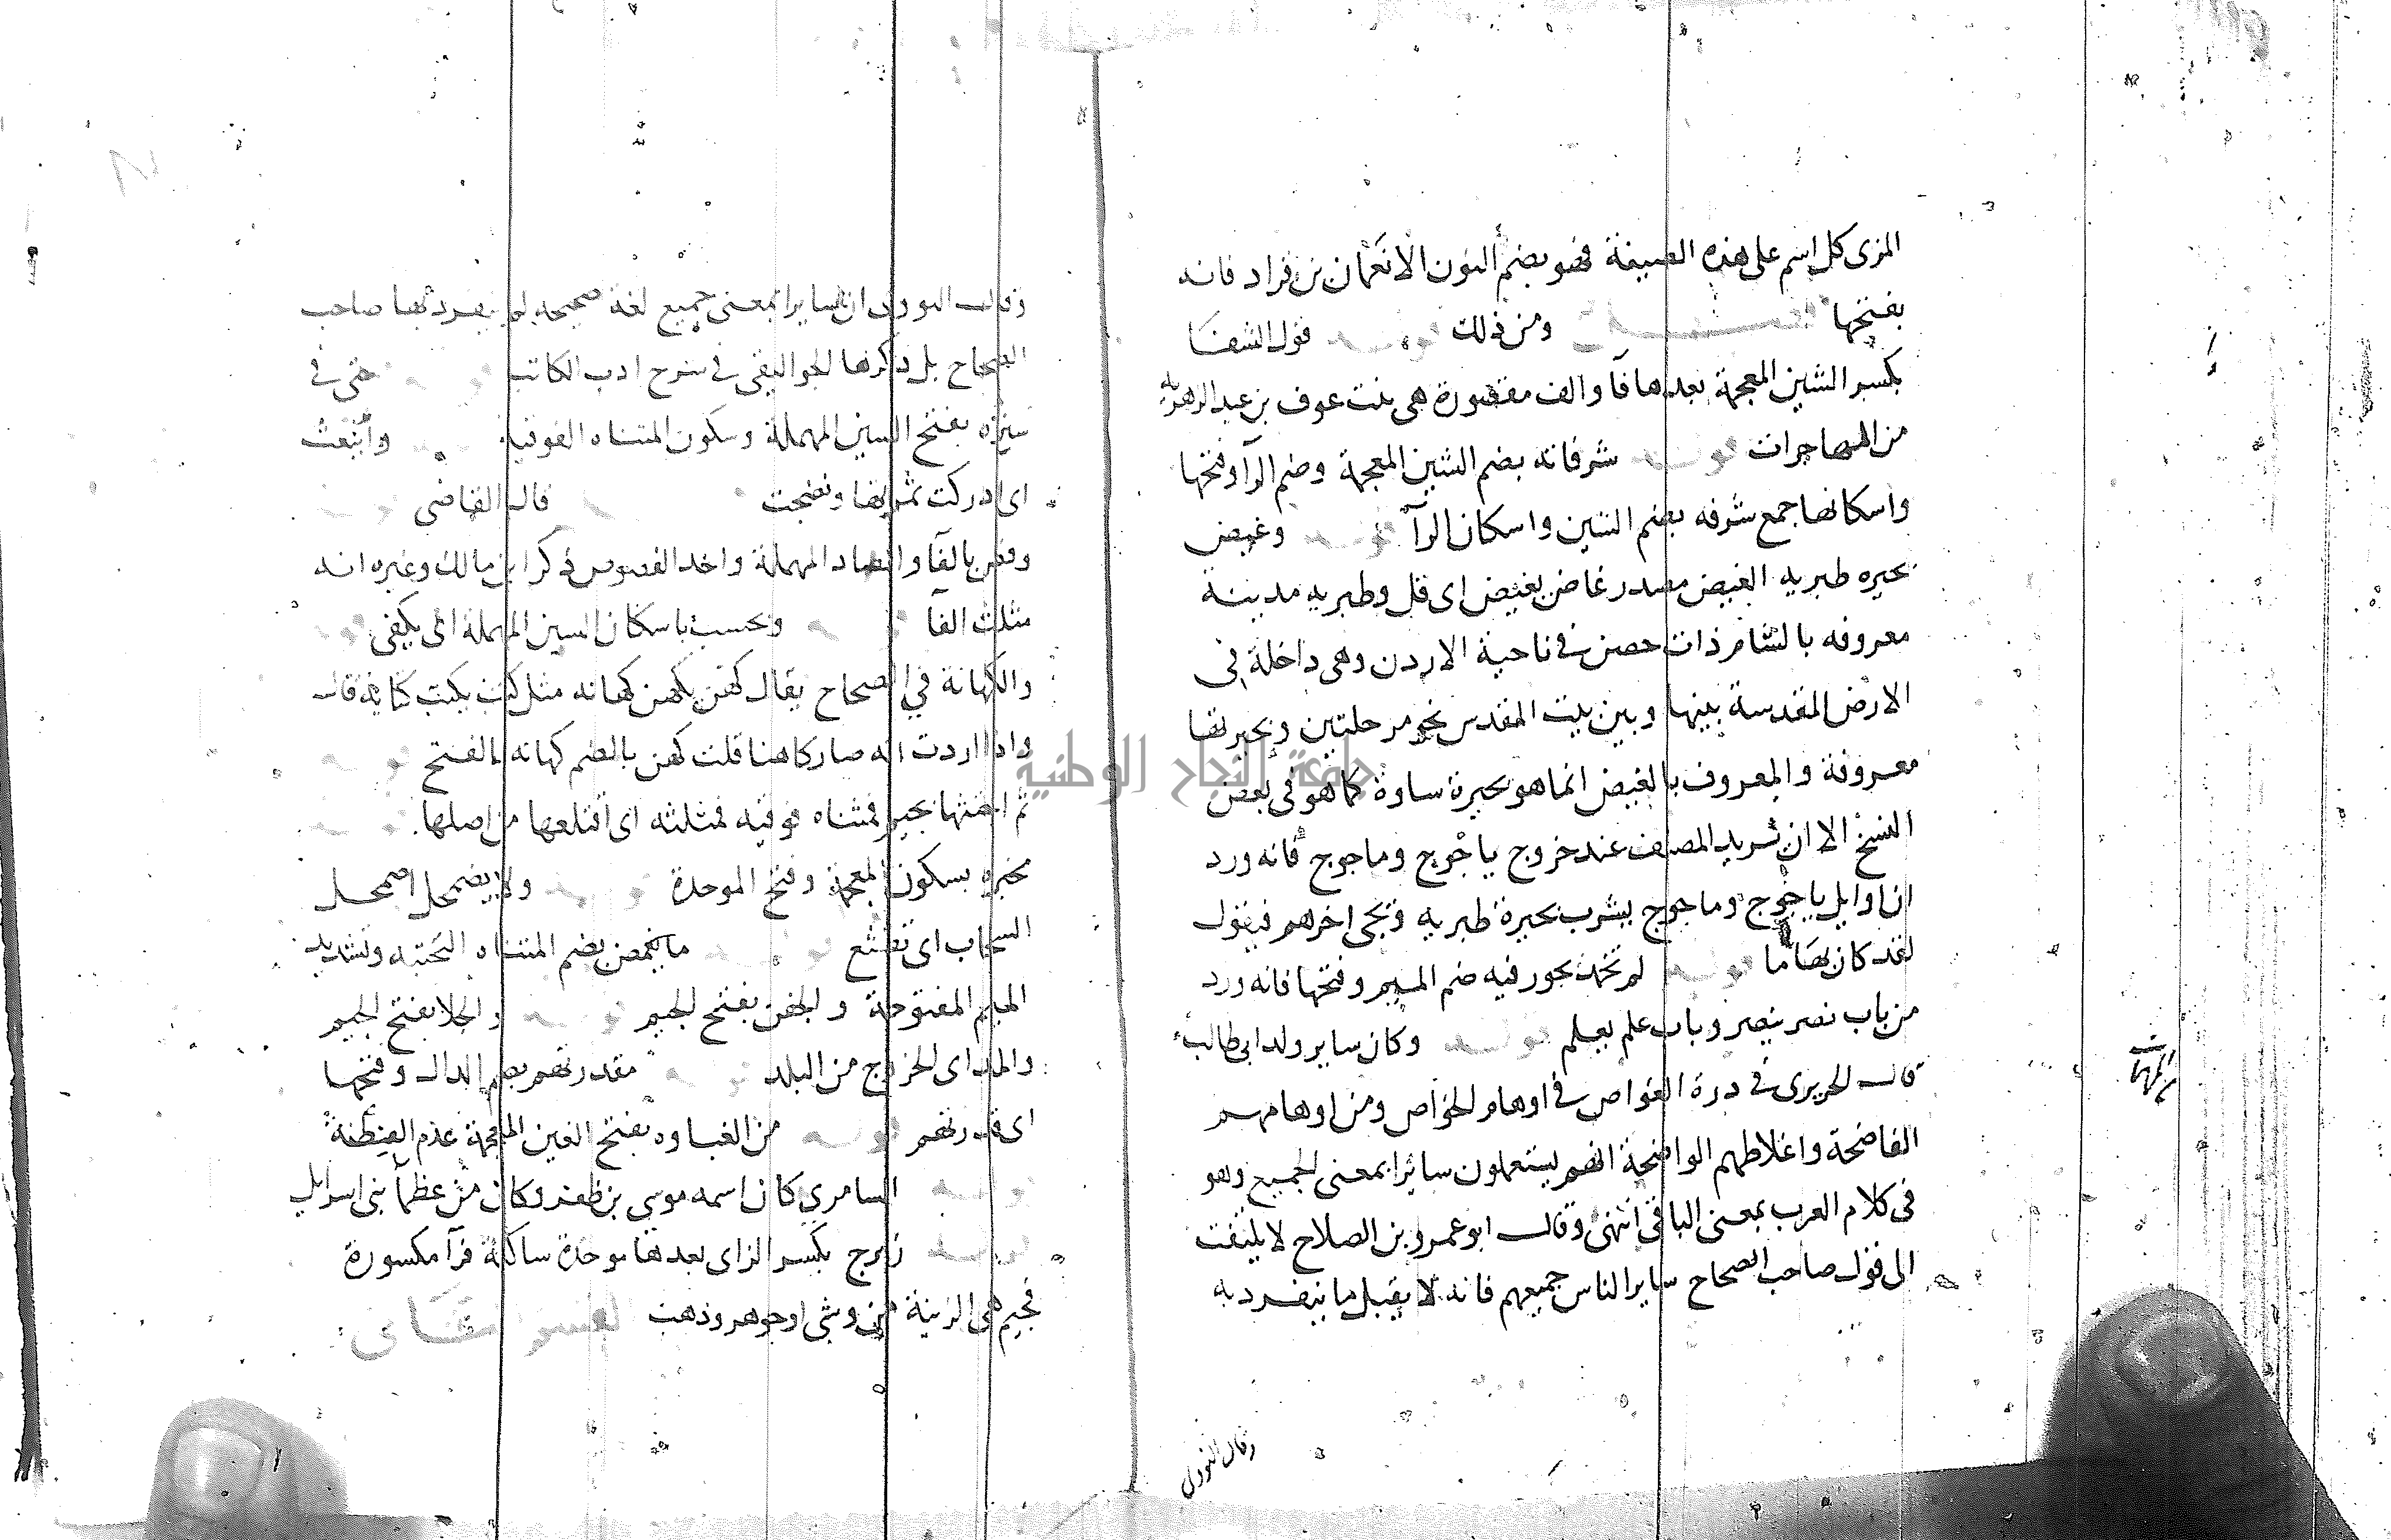 المزى كل اسم على هذه الصيغة فهو بضم النون الا نعمان بن قراد فانه
بفتحها ومن ذلك قوله قول الشفا
بكسر الشين المعجمة بعدها فآ والف مقصورة هى بنت عوف بن عبد
من المهاجرات قوله شرفاته بضم الشين المعجمة وضم الرآ وفتحها
واسكانها جمع شرفه بضم الشين واسكان الرآ قوله وغيض
بحيره طبريه الغيض مصدر غاض يغيض اى قل وطبريه مدينه
معروفه بالشام ذات حصن فى ناحية الاردن وهى داخلة فى
الارض المقدسة بينها وبين بيت المقدس نحو مرحلتين وبحيرتها
معروفة والمعروف بالغيض انما هو بحيرة ساوة كما هو فى بعض
النسخ الا ان يريد المصنف عند خروج ياجوج وماجوج فانه ورد
ان اوايل ياجوج وماجوج يشرب بحيرة طبريه ويجى اخرهم فيقول
لقد كان بها ما قوله لم تخمد يجوز فيه ضم الميم وفتحها فانه ورد
من باب نصر ينصر وباب علم يعلم قوله وكان ساير ولد ابى طالب
قال الحريرى فى درة الغواص فى اوهام الخواص ومن اوهامهم
الفاضحة واغلاطهم الواضحة انهم يستعملون سائرا بمعنى الجميع وهو
فى كلام العرب بمعنى الباقى انتهى وقال ابو عمرو بن الصلاح لا يلتفت
الى قول صاحب الصحاح ساير الناس جميعهم فانه لا يقبل ما ينفرد به
وقال النووى
وقال النووى ان سايرا بمعنى جميع لغة صحيحه لم ينفرد بها صاحب
الصحاح بل ذكرها الجواليقى فى شرح ادب الكاتب قوله حتى فى
ستره بفتح السين المهملة وسكون المثناه الفوقيه وأينعت
اى ادركت ثمرتها ونضجت قال القاضى
وفص بالفآ والصاد المهملة واحد الفصوص ذكر ابن مالك وغيره انه
مثلث الفآ قوله وبحسب باسكان السين المهملة اى يكفى قوله
والكهانة في الصحاح يقال كهن يكهن كهانه مثل كتب يكتب كتابة قال
واذا اردت انه صار كاهنا قلت كهن بالضم كهانه بالفتح قوله
ثم اجتثها بجيم فمثناه فوقيه فمثلثه اى اقتلعها من اصلها قوله
مخبره بسكون المعجمة وفتح الموحدة قوله ولا يضمحل اضمحل
السحاب اى تقشع قوله ما يغمض بضم المثناه التحتيه وتشديد
الميم المفتوحة والجفن بفتح الجيم قوله والجلا بفتح الجيم
والمد اى الخروج من البلد قوله مقدرتهم بضم الدال وفتحها
اى قدرتهم قوله من الغباوه بفتح الغين المعجمة عدم الفطنة
قوله السامري كان اسمه موسى بن ظفر وكان من عظمآ بنى اسرايل
قوله زبرج بكسر الزاى بعدها موحدة ساكنة فرآ مكسورة
فجيم هى الزينة من وشى او جوهر وذهب
جامعة النجاح الوطنية